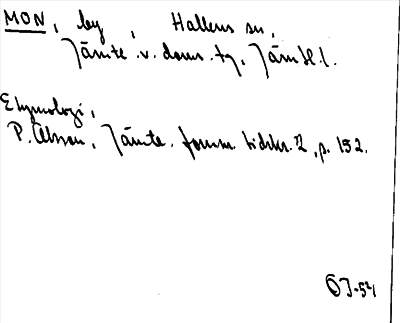 MON, by, Hallens sn,
Jämte. v. doms. tg, Jämtl. l.
Etymologi,
P. Olsson, Jämte. fornm. tidskr. 2, p. 152.
ÖJ-54